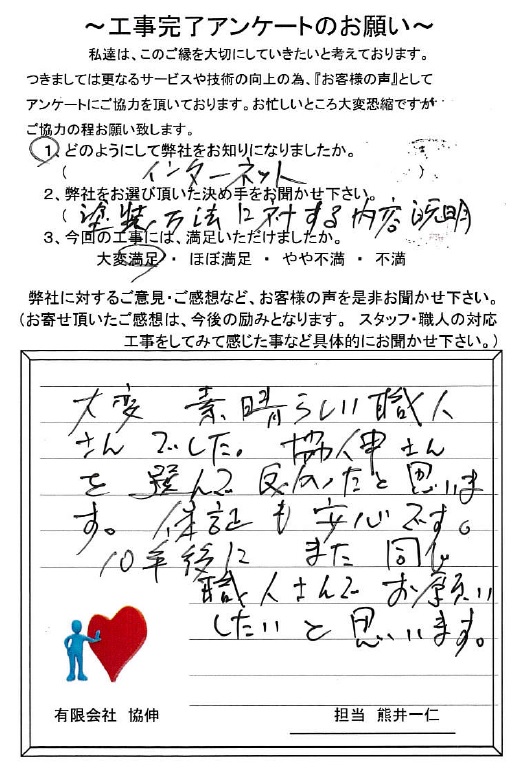 ～工事完了アンケートのお願い～
私達は、このご縁を大切にしていきたいと考えております。
つきましては更なるサービスや技術の向上の為、『お客様の声』として
アンケートにご協力を頂いております。お忙しいところ大変恐縮ですが
ご協力の程お願い致します。
1、どのようにして弊社をお知りになりましたか。
( インターネット )
2、弊社をお選び頂いた決め手をお聞かせ下さい。
( 塗装方法に対する内容説明
3、今回の工事には、満足いただけましたか。
大変満足 ・ ほぼ満足 ・ やや不満 ・ 不満
弊社に対するご意見・ご感想など、お客様の声を是非お聞かせ下さい。
(お寄せ頂いたご感想は、今後の励みとなります。 スタッフ・職人の対応
工事をしてみて感じた事など具体的にお聞かせ下さい。)
大変 素晴らしい職人
さんでした。 協伸さん
を選んで良かったと思いま
す。保証も安心です。
10年後に また同じ
職人さんで お願い
したいと思います。
有限会社 協伸
担当 熊井一仁